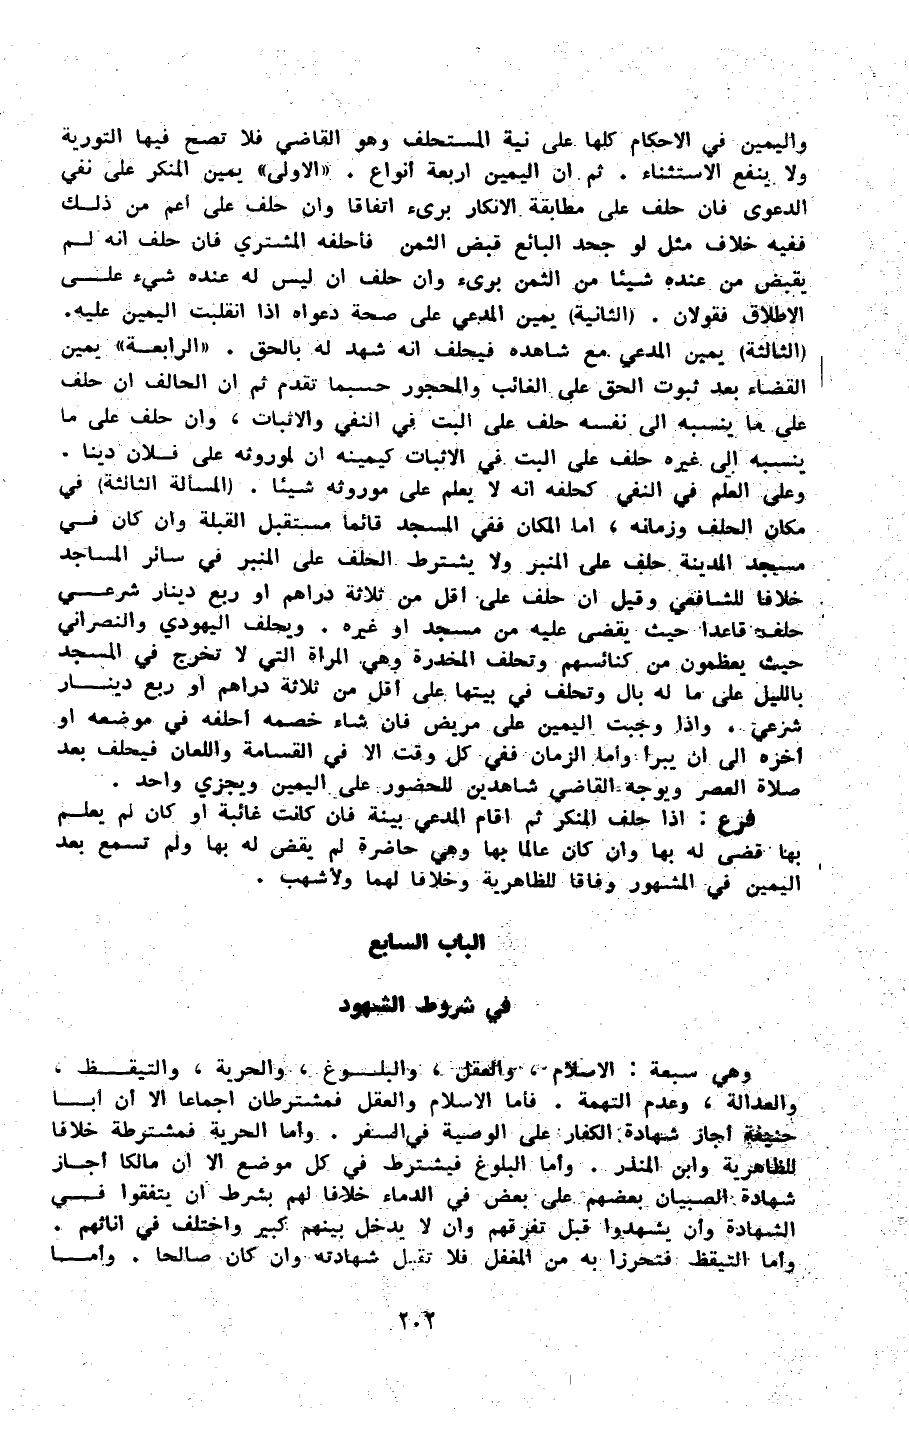 واليمين في الاحكام كلها على نية المستحلف وهو القاضي فلا تصح فيها التورية
ولا ينفع الاستثناء . ثم ان اليمين اربعة أنواع . «الاولى» يمين المنكر على نفي
الدعوى فان حلف على مطابقة الانكار برىء اتفاقا وان حلف على أعم من ذلـك
ففيه خلاف مثل لو جحد البائع قبض الثمن فأحلفه المشتري فان حلف انه لـم
يقبض من عنده شيئا من الثمن برىء وان حلف ان ليس له عنده شيء علـــى
الاطلاق فقولان . (الثانية) يمين المدعي على صحة دعواه اذا انقلبت اليمين عليه.
(الثالثة) يمين المدعي مع شاهده فيحلف انه شهد له بالحق . «الرابعـــة» يمين
القضاء بعد ثبوت الحق على الغائب والمحجور حسبما تقدم ثم ان الحالف ان حلف
على ما ينسبه الى نفسه حلف على البت في النفي والاثبات ، وان حلف على ما
ينسبه الى غيره حلف على البت في الاثبات كيمينه ان لموروثه على فـلان دينا .
وعلى العلم في النفي كحلفه انه لا يعلم على موروثه شيئا . (المسألة الثالثة) في
مكان الحلف وزمانه ، اما المكان ففي المسجد قائما مستقبل القبلة وان كان فـــي
مسجد المدينة حلف على المنبر ولا يشترط الحلف على المنبر في سائر المساجد
خلافا للشافعي وقيل ان حلف على اقل من ثلاثة دراهم او ربع دينار شرعـــي
حلف قاعدا حيث يقضى عليه من مسجد او غيره . ويحلف اليهودي والنصراني
حيث يعظمون من كنائسهم وتحلف المخدرة وهي المرأة التي لا تخرج في المسجد
بالليل على ما له بال وتحلف في بيتها على أقل من ثلاثة دراهم او ربع دينـــار
شرعي . واذا وجبت اليمين على مريض فان شاء خصمه أحلفه في موضعه او
أخره الى ان يبرأ وأما الزمان ففي كل وقت الا في القسامة واللعان فيحلف بعد
صلاة العصر ويوجه القاضي شاهدين للحضور على اليمين ويجزي واحد .
فرع : اذا حلف المنكر ثم اقام المدعي بينة فان كانت غائبة او كان لم يعلـم
بها قضى له بها وان كان عالما بها وهي حاضرة لم يقض له بها ولم تسمع بعد
اليمين في المشهور وفاقا للظاهرية وخلافا لهما ولأشهب .
الباب السابع
في شروط الشهود
وهي سبعة : الاسلام ، والعقل ، والبلـــوغ ، والحرية ، والتيقـــظ ،
والعدالة ، وعدم التهمة . فأما الاسلام والعقل فمشترطان اجماعا الا أن أبـــا
حنيفة أجاز شهادة الكفار على الوصية في السفر . وأما الحرية فمشترطة خلافا
للظاهرية وابن المنذر . وأما البلوغ فيشترط في كل موضع الا ان مالكا أجـــاز
شهادة الصبيان بعضهم على بعض في الدماء خلافا لهم بشرط ان يتفقوا فـــي
الشهادة وأن يشهدوا قبل تفرقهم وان لا يدخل بينهم كبير واختلف في اناثهم .
وأما التيقظ فتحرزا به من المغفل فلا تقبل شهادته وان كان صالحا . وأمـــا
٢٠٢